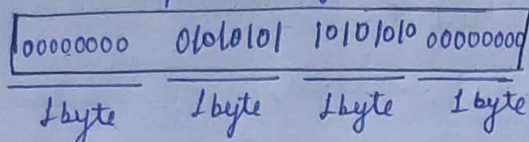 00000000 01010101 10101010 00000000
1byte 1byte 1byte 1byte